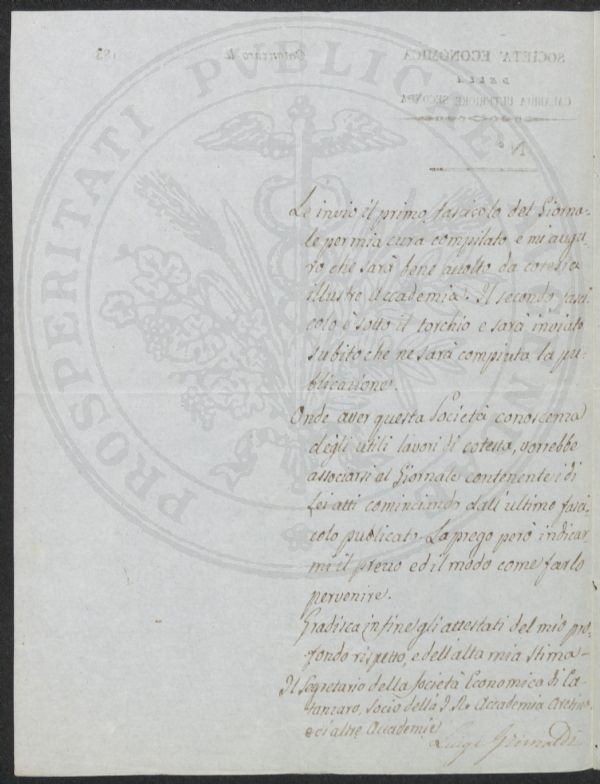 SOCIETA' ECONOMICA
DELLA
CALABRIA ULTERIORE SECONDA
Catanzaro li 183
N.°
PROSPERITATI PUBLICAE AUGENDAE
Le invio il primo fascicolo del Giorna-
le per mia cura compilato e mi augu-
ro che sarà bene accolto da cotesta
illustre Accademia. Il secondo fasci
colo è sotto il torchio e sarà inviato
subito che ne sarà compiuta la pu-
blicazione.
Onde aver questa Società conoscenza
degli utili lavori di cotessa, vorrebbe
associarsi al Giornale contenente i di
Lei atti cominciando dall'ultimo fasci-
colo publicato. La prego però indicar
mi il prezzo ed il modo come farlo
pervenire.
Gradisca infine gli attestati del mio pro-
fondo rispetto, e dell'alta mia stima—
Il Segretario della Società Economica di Ca-
tanzaro, Socio della I. R. Accademia Aretina
e di altre Accademie
Luigi Grimaldi